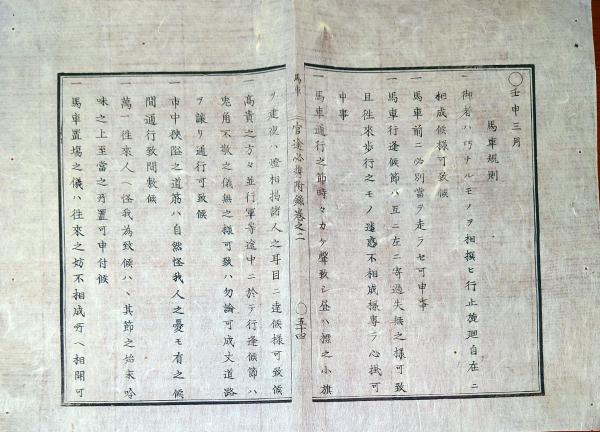 〇壬申三月
馬車規則
一御者ハ巧ナルモノヲ相撰ヒ行止旋廻自在ニ
相成候様可致候
一馬車前ニ必別當ヲ走ラセ可申事
一馬車行逢候節ハ互ニ左ニ寄過失無之様可致
且往來歩行之モノ迷惑不相成様専ラ心掛可
申事
一馬車通行之節時々カケ聲致シ昼ハ標之小旗
馬車
官途必携附録巻之二
〇五十四
ヲ建夜ハ燈相揚諸人之耳目ニ達候様可致候
一高貴之方々並行軍等途中ニ於テ行逢候節ハ
兎角不敬之儀無之様可致ハ勿論可成丈道路
ヲ譲リ通行可致候
一市中狭隘之道筋ハ自然怪我人之憂モ有之候
間通行致間敷候
一萬一往來人ヘ怪我為致候ハヽ其節之始末吟
味之上至當之所置可申付候
一馬車置場之儀ハ往來之妨不相成所ヘ相開可